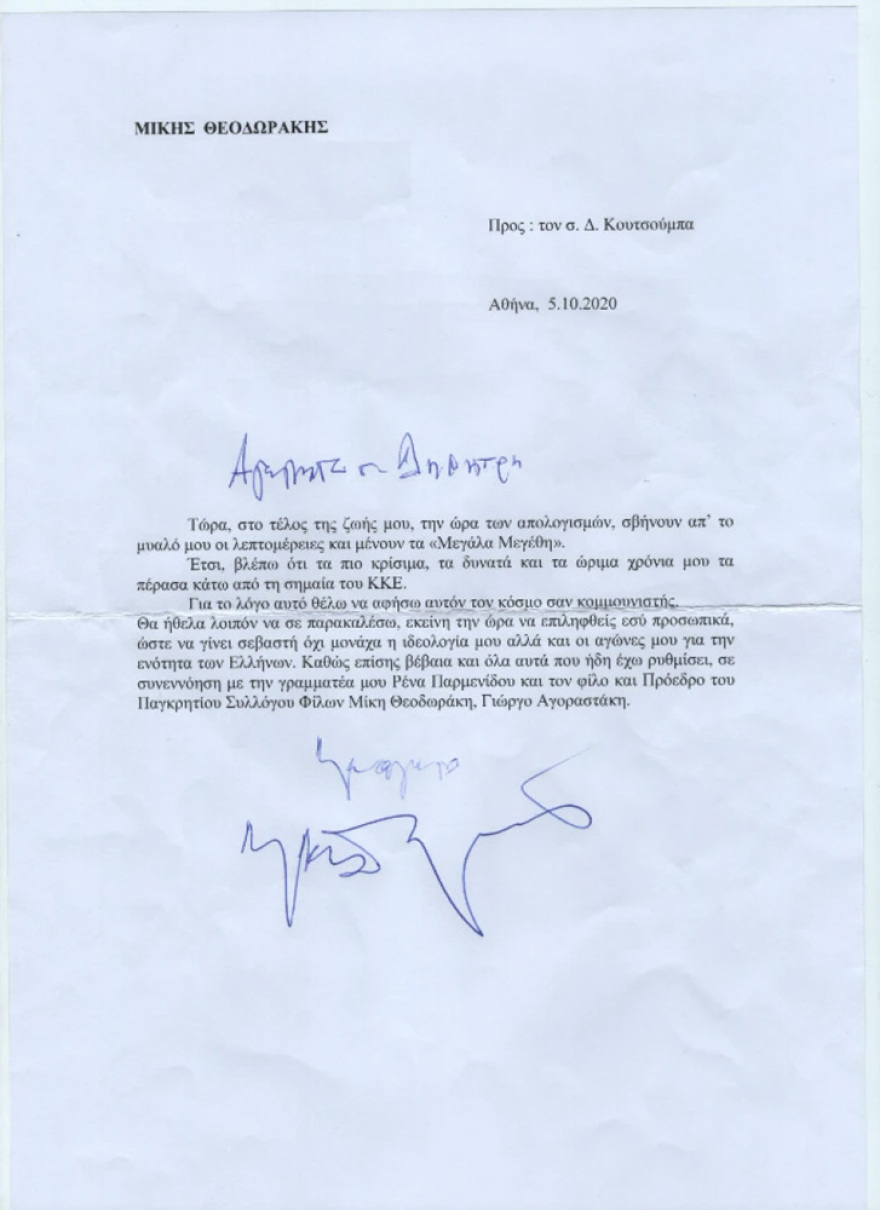 ΜΙΚΗΣ ΘΕΟΔΩΡΑΚΗΣ
Προς : τον σ. Δ. Κουτσούμπα
Αθήνα, 5.10.2020
Αγαπητέ σ. Δημήτρη
Τώρα, στο τέλος της ζωής μου, την ώρα των απολογισμών, σβήνουν απ’ το
μυαλό μου οι λεπτομέρειες και μένουν τα «Μεγάλα Μεγέθη».
Έτσι, βλέπω ότι τα πιο κρίσιμα, τα δυνατά και τα ώριμα χρόνια μου τα
πέρασα κάτω από τη σημαία του ΚΚΕ.
Για το λόγο αυτό θέλω να αφήσω αυτόν τον κόσμο σαν κομμουνιστής.
Θα ήθελα λοιπόν να σε παρακαλέσω, εκείνη την ώρα να επιληφθείς εσύ προσωπικά,
ώστε να γίνει σεβαστή όχι μονάχα η ιδεολογία μου αλλά και οι αγώνες μου για την
ενότητα των Ελλήνων. Καθώς επίσης βέβαια και όλα αυτά που ήδη έχω ρυθμίσει, σε
συνεννόηση με την γραμματέα μου Ρένα Παρμενίδου και τον φίλο και Πρόεδρο του
Παγκρητίου Συλλόγου Φίλων Μίκη Θεοδωράκη, Γιώργο Αγοραστάκη.